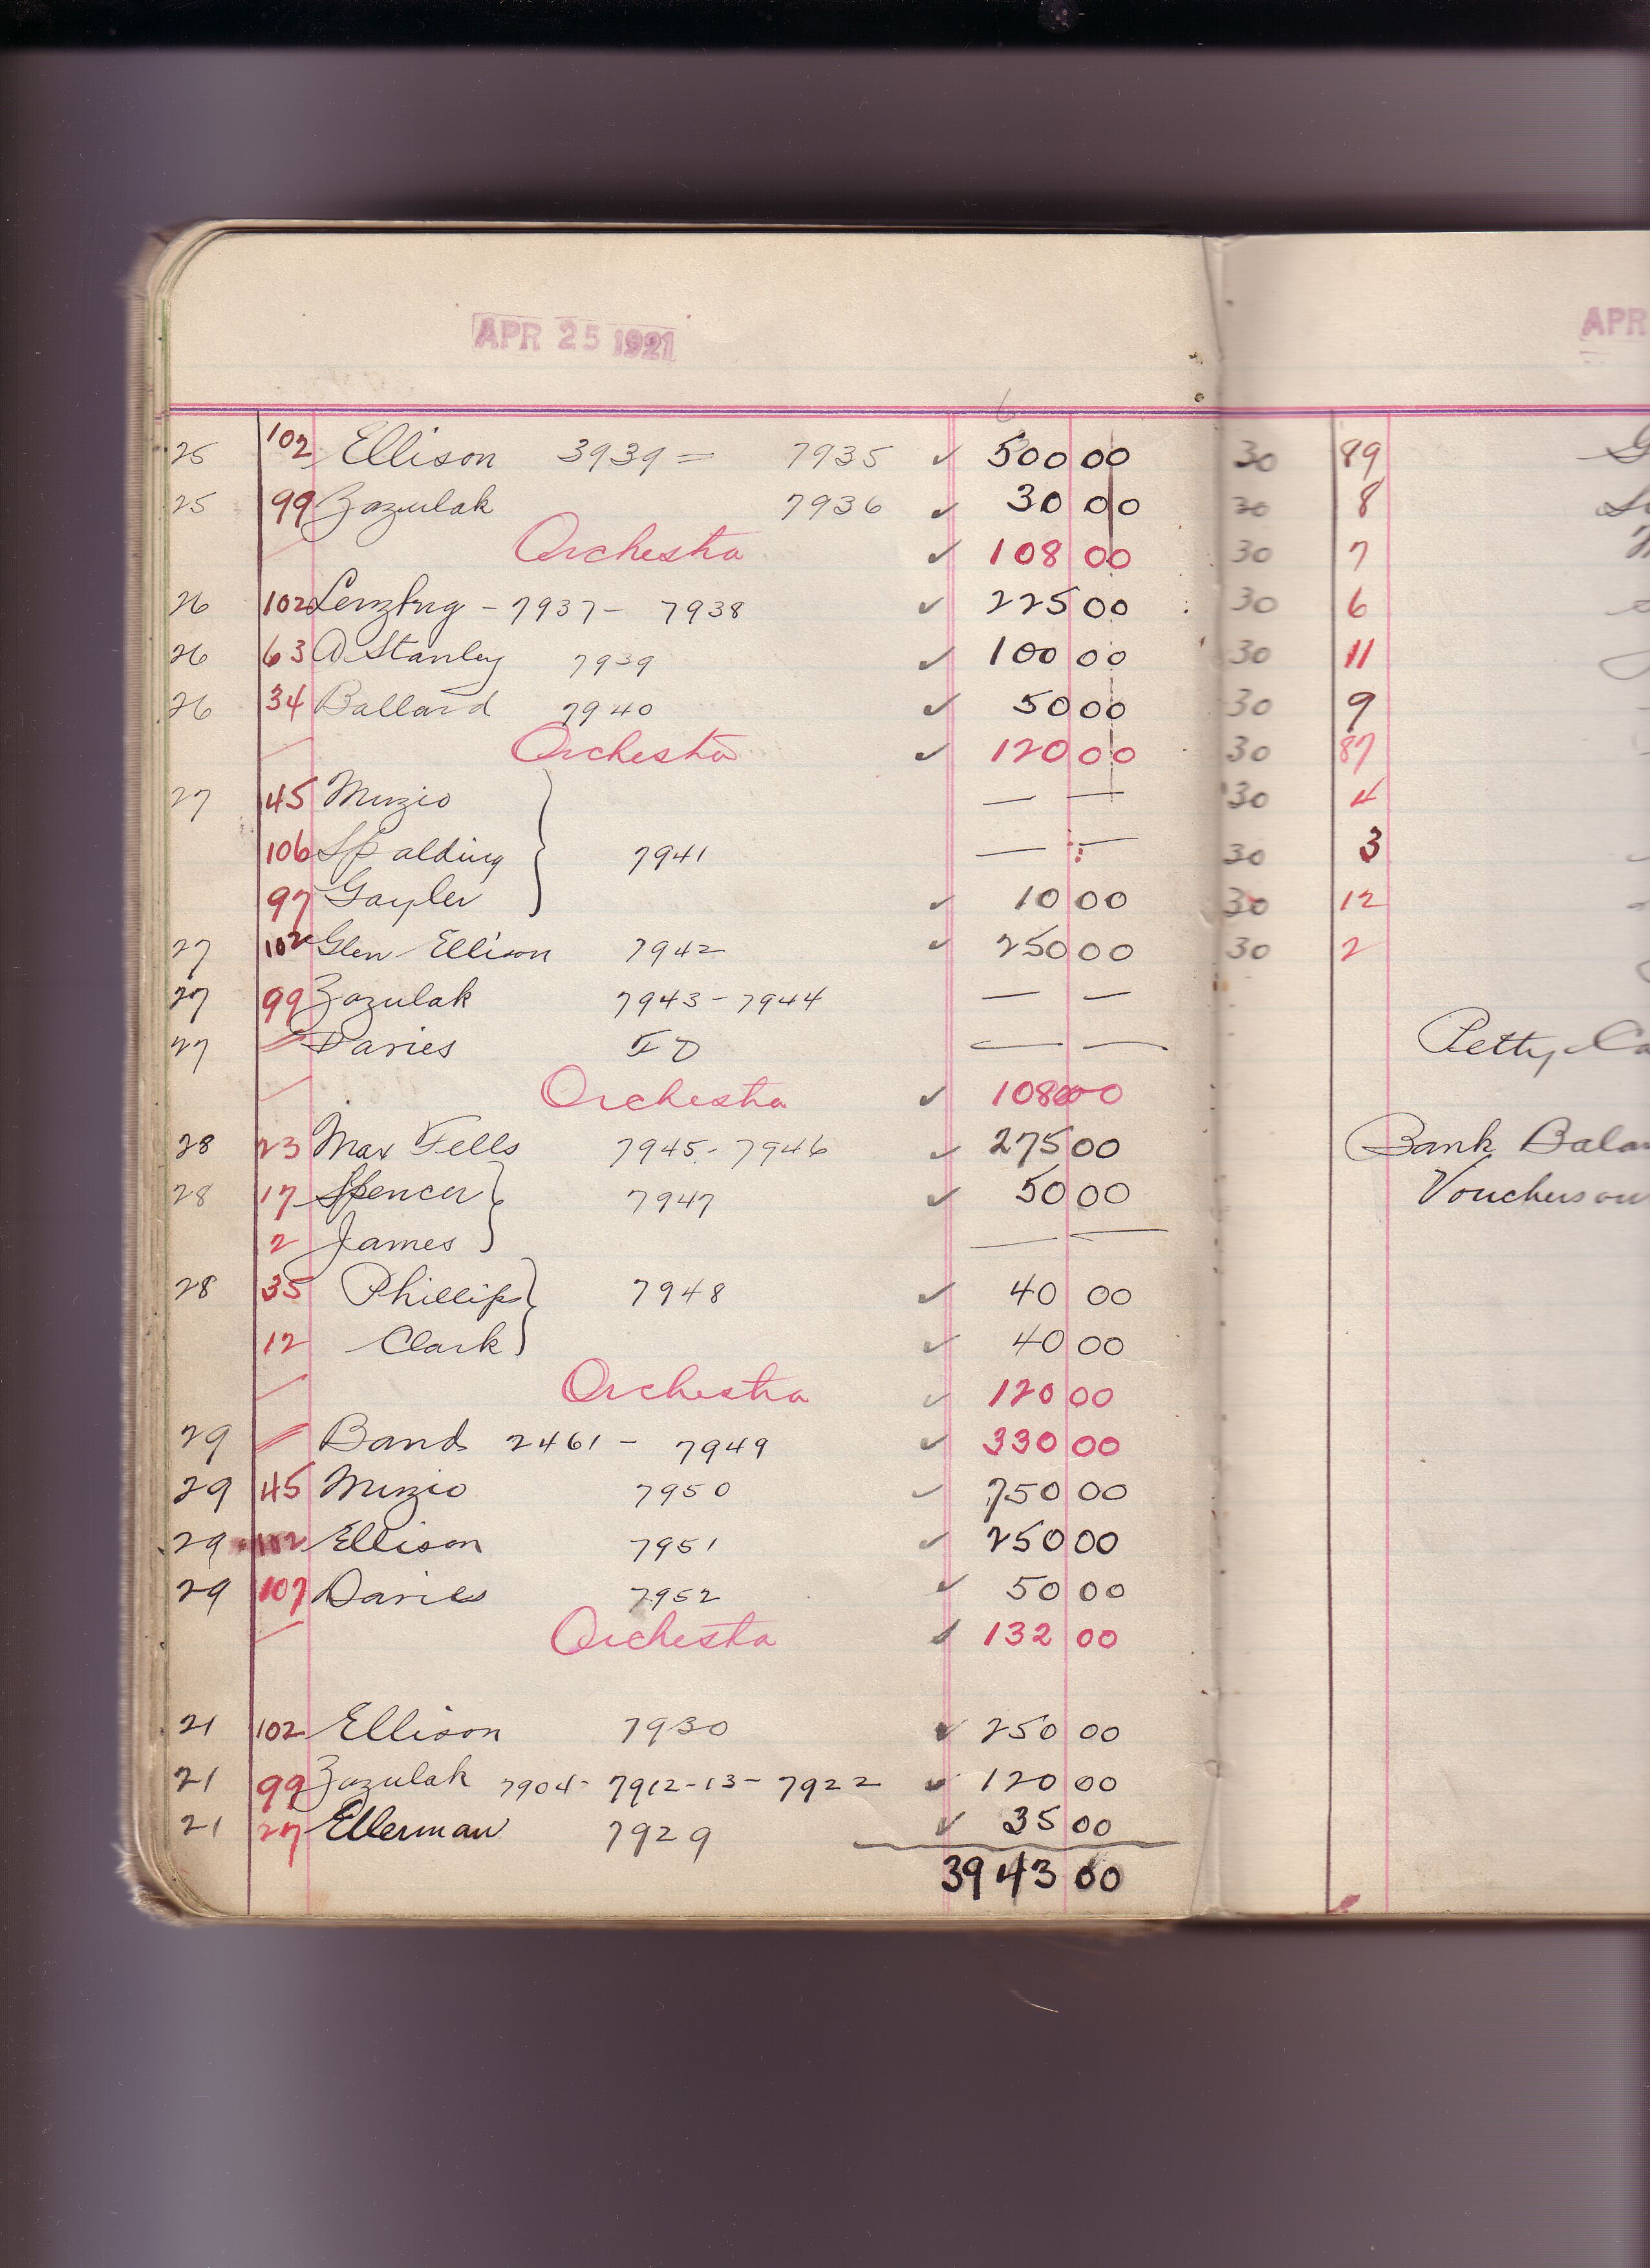 APR 25 1921
25 102 Ellison 3939 = 7935 ✓ 500 00
25 99 Zazulak 7936 ✓ 30 00
Orchestra ✓ 108 00
26 102 Lenzbrg - 7937 - 7938 ✓ 225 00
26 63 A Stanley 7939 ✓ 100 00
26 34 Ballard 7940 ✓ 50 00
Orchestra ✓ 120 00
27 45 Muzio — —
106 Spalding 7941 — —
97 Gayler ✓ 10 00
27 102 Glen Ellison 7942 ✓ 250 00
27 99 Zazulak 7943 - 7944 — —
27 Davies — —
Orchestra ✓ 108 00
28 23 Max Fells 7945 - 7946 ✓ 275 00
28 17 Spencer 7947 ✓ 50 00
2 James — —
28 35 Phillips 7948 ✓ 40 00
12 Clark ✓ 40 00
Orchestra ✓ 120 00
29 Band 2461 - 7949 ✓ 330 00
29 45 Muzio 7950 ✓ 750 00
29 102 Ellison 7951 ✓ 250 00
29 107 Davies 7952 ✓ 50 00
Orchestra ✓ 132 00
21 102 Ellison 7930 ✓ 250 00
21 99 Zazulak 7904 - 7912-13 - 7922 ✓ 120 00
21 27 Ellerman 7929 ✓ 35 00
3943 00
APR
30 89
30 8
30 7
30 6
30 11
30 9
30 87
30 4
30 3
30 12
30 2
Petty Ca
Bank Bala
Vouchers ou